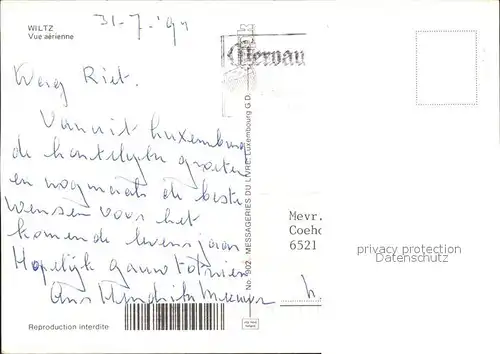 WILTZ
Vue aérienne
31-7-'91
Dag Riet.
Vanuit Luxemburg
de hartelijke groeten
en nogmaals de beste
wensen voor het
komende levensjaar
Hopelijk gauw tot ziens
Vervau
No. 902. MESSAGERIES DU LIVRE, Luxembourg G.D.
Mevr.
Coeho
6521
privacy protection
Datenschutz
Reproduction interdite